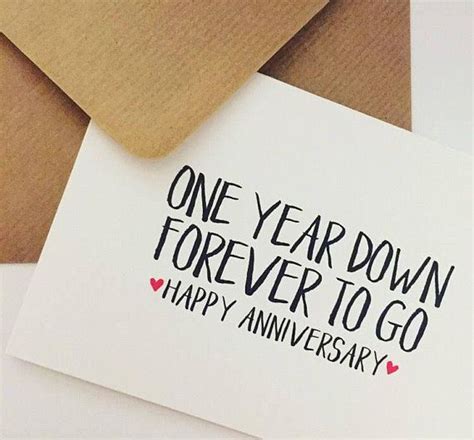 ONE YEAR DOWN
FOREVER TO GO
♥HAPPY ANNIVERSARY♥